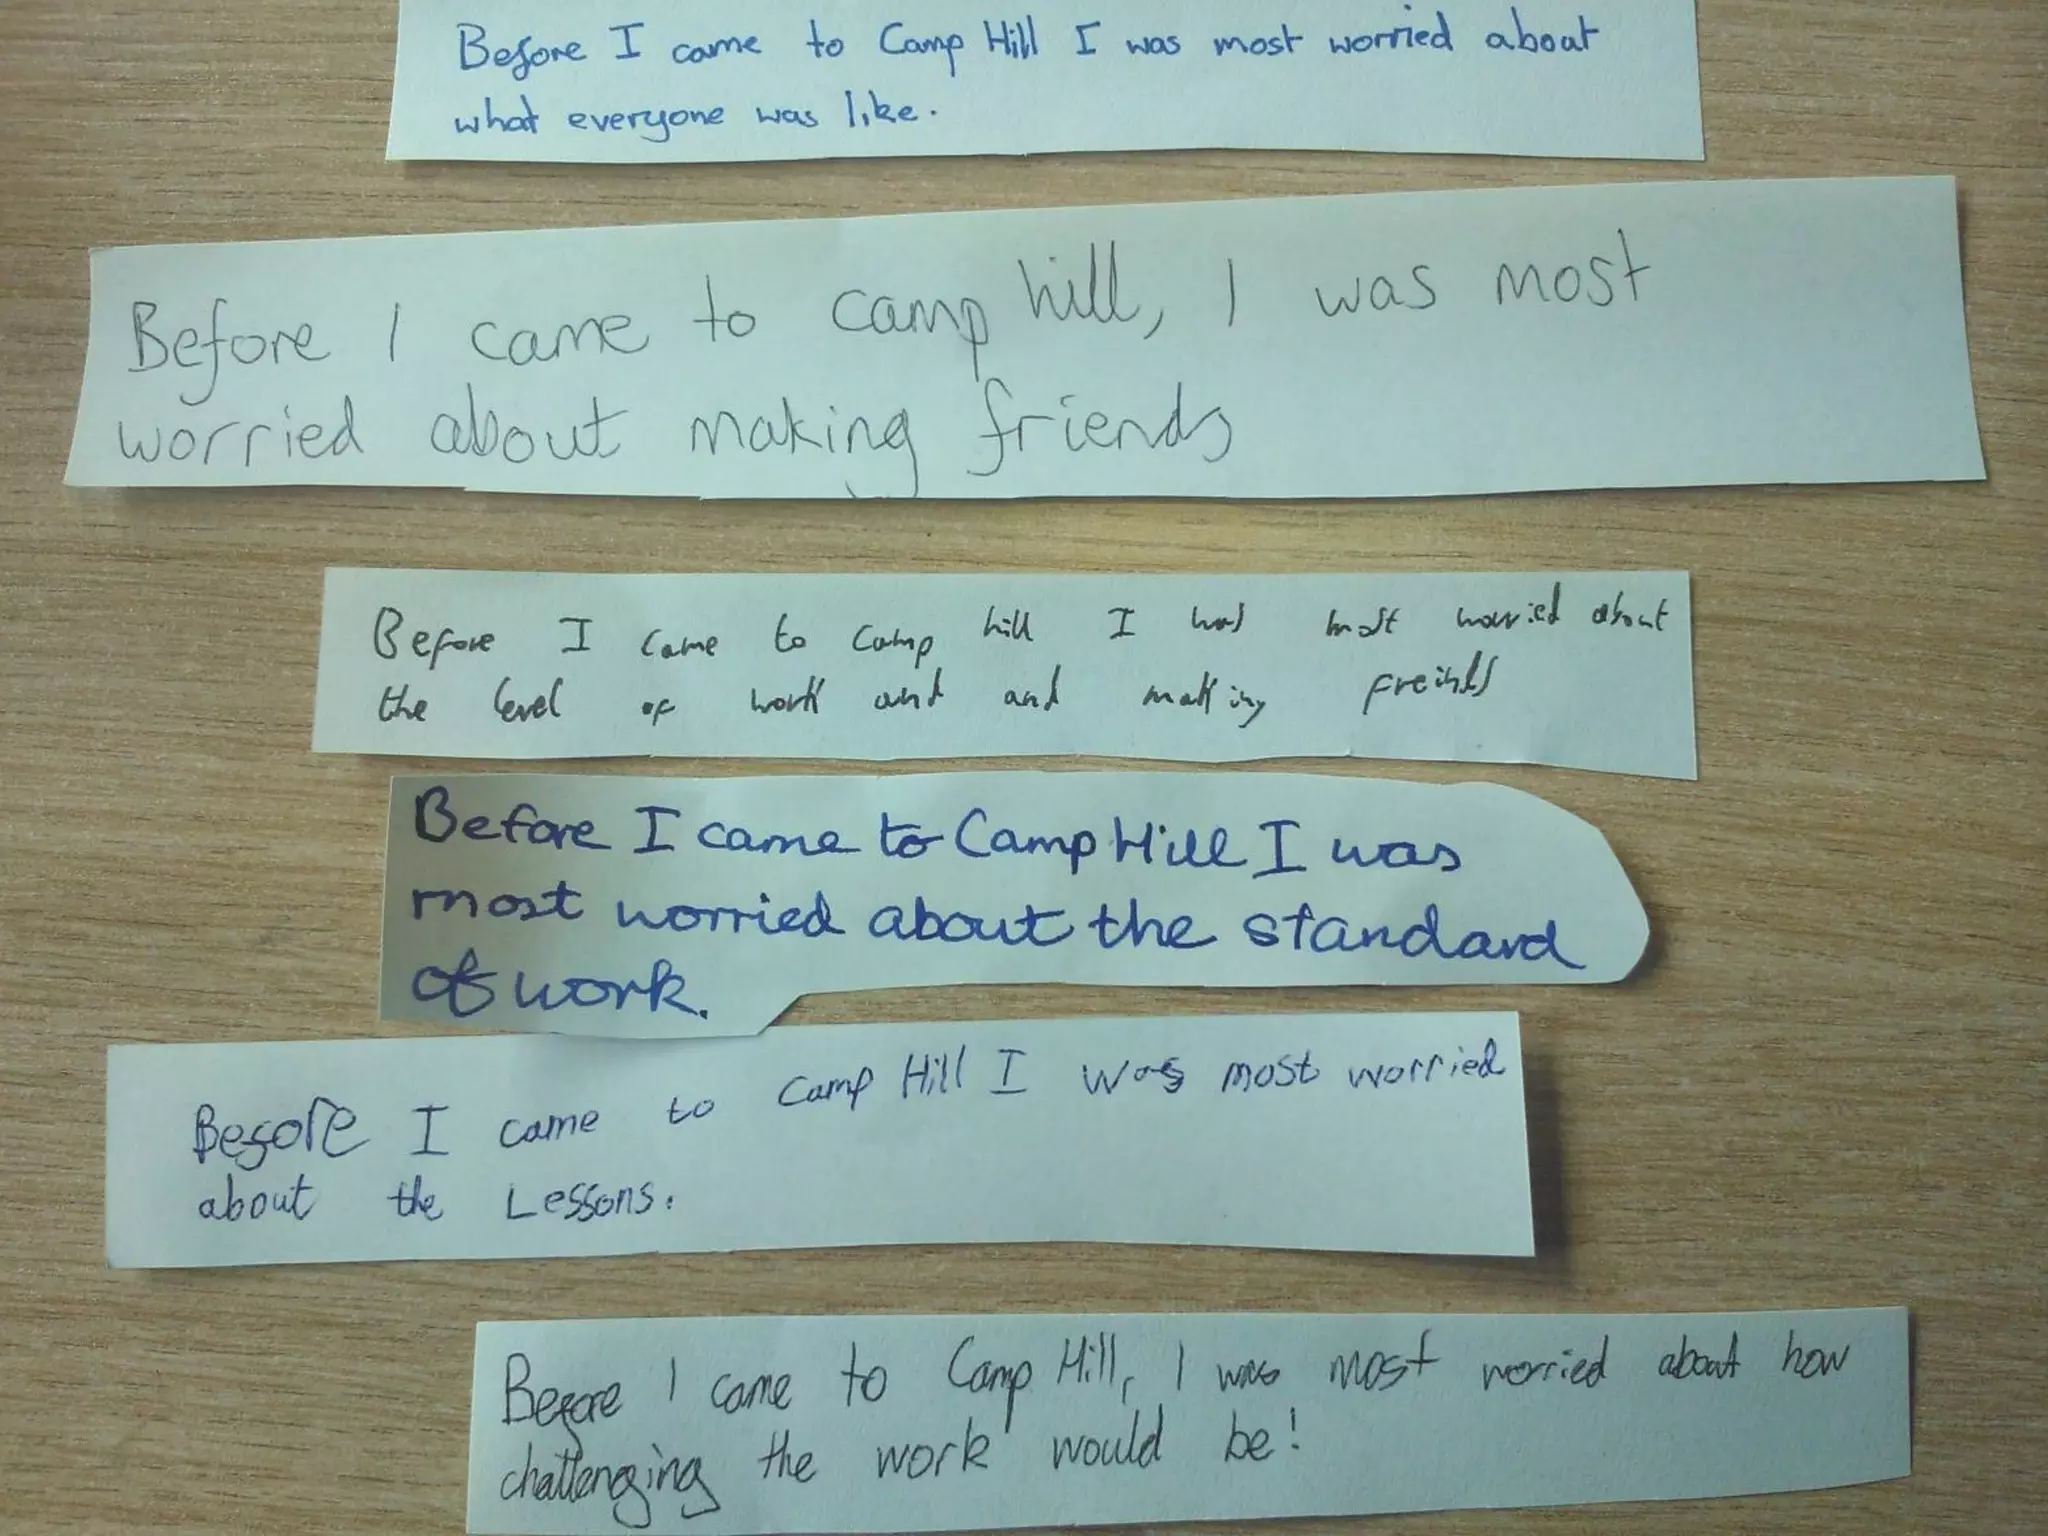 Before I came to Camp Hill I was most worried about
what everyone was like.
Before I came to camp hill, I was most
worried about making friends
Before I came to camp hill I was most worried about
the level of work and and making freinds
Before I came to Camp Hill I was
most worried about the standard
of work.
Before I came to Camp Hill I was most worried
about the Lessons.
Before I came to Camp Hill, I was most worried about how
challenging the work would be!